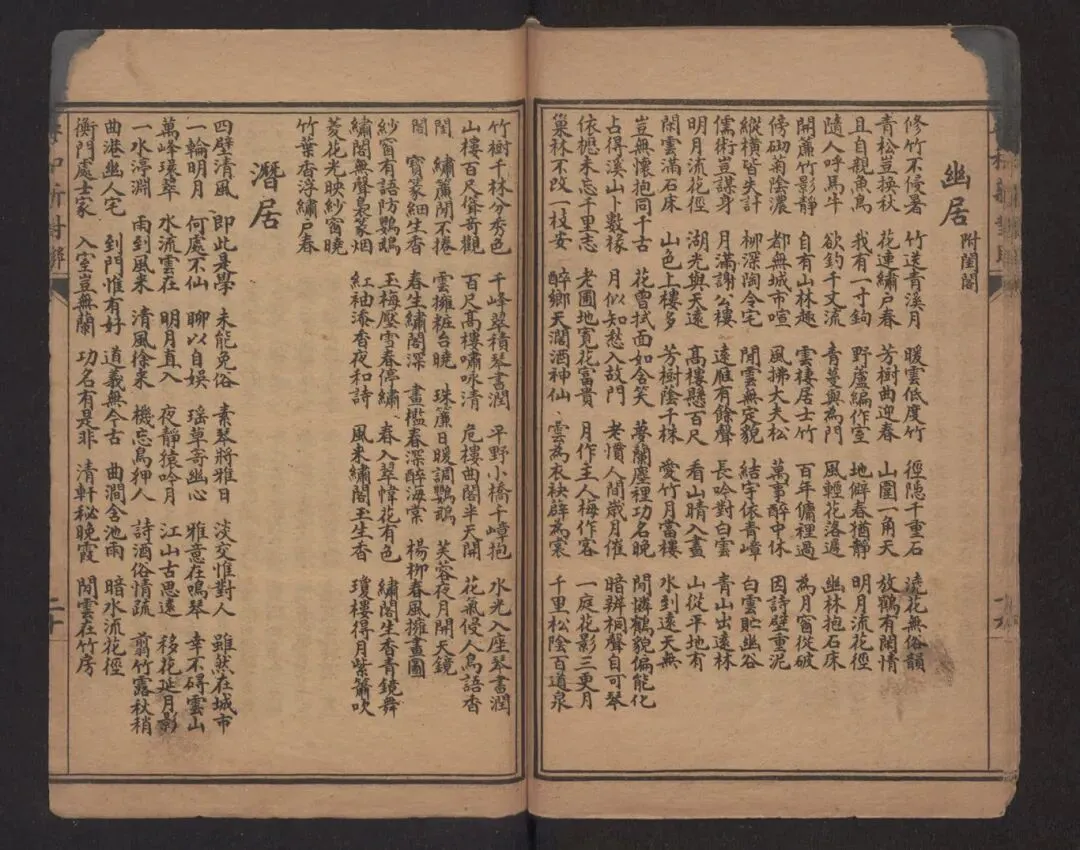 幽居 附閨閣
修竹不侵暑 竹送青溪月 暖雲低度竹 徑隱千重石 澆花無俗韻
青松豈換秋 花連繡戶春 芳樹曲迎春 山圍一角天 放鶴有閑情
且自親魚鳥 我有一寸鉤 野蘆編作室 地僻春猶靜 明月流花徑
隨人呼馬牛 欲釣千丈流 青蔓與為門 風輕花落遲 幽林抱石床
開簾竹影靜 自有山林趣 雲棲居士竹 百年傭裡過 為月窗從破
傍砌菊陰濃 都無城市喧 風拂大夫松 萬事醉中休 因詩壁重泥
縱橫皆失計 柳深陶令宅 閒雲無定貌 結宇依青嶂 白雲貯幽谷
儒術豈謀身 月滿謝公樓 遠雁有餘聲 長吟對白雲 青山出遠林
明月流花徑 湖光與天遠 高樓懸百尺 看山晴入畫 山從平地有
閑雲滿石床 山色上樓多 芳樹蔭千株 愛竹月當樓 水到遠天無
豈無懷抱同千古 花曾拭面如含笑 夢蘭塵裡功名晚 閒憐鶴貌偏能化
占得溪山卜數椽 月似知愁入故門 老慣人間歲月催 暗辨桐聲自可琴
依樾未忘千里志 老圃地寬花富貴 月作主人梅作客 一庭花影三更月
巢林不改一枝安 醉鄉天濶酒神仙 雲為衣袂薜為裳 千里松陰百道泉
竹樹千林分秀色 千峰翠積琴書潤 平野小橋千嶂抱 水光入座琴書潤
山樓百尺聳奇觀 百尺高樓嘯咏清 危樓曲閣半天開 花氣侵人鳥語香
閨 繡簾閒不捲 雲擁粧台曉 珠簾日暖調鸚鵡 芙蓉夜月開天鏡
閣 寶篆細生香 春生繡閣深 畫檻春深醉海棠 楊柳春風擁畫圖
紗窗有語防鸚鵡 玉梅壓雪春停繡 春入翠幃花有色 繡閣生香青鏡舞
繡閣無聲裊篆烟 紅袖添香夜和詩 風來繡閣玉生香 瓊樓得月紫簫吹
菱花光映紗窗曉
竹葉香浮繡戶春
潛居
四壁清風 即此是學 未能免俗 素琴將雅日 淡交惟對人 雖然在城市
一輪明月 何處不仙 聊以自娛 瑤草寄幽心 雅意在鳴琴 幸不碍雲山
萬峰環翠 水流雲在 明月直入 夜靜猿吟月 江山古思遠 移花延月影
一水渟淵 雨到風來 清風徐來 機忘鳥狎人 詩酒俗情疏 剪竹露秋稍
曲港幽人宅 到門惟有好 道義無今古 曲澗含池雨 暗水流花徑
衡門處士家 入室豈無蘭 功名有是非 清軒秘晚霞 閒雲在竹房
二十